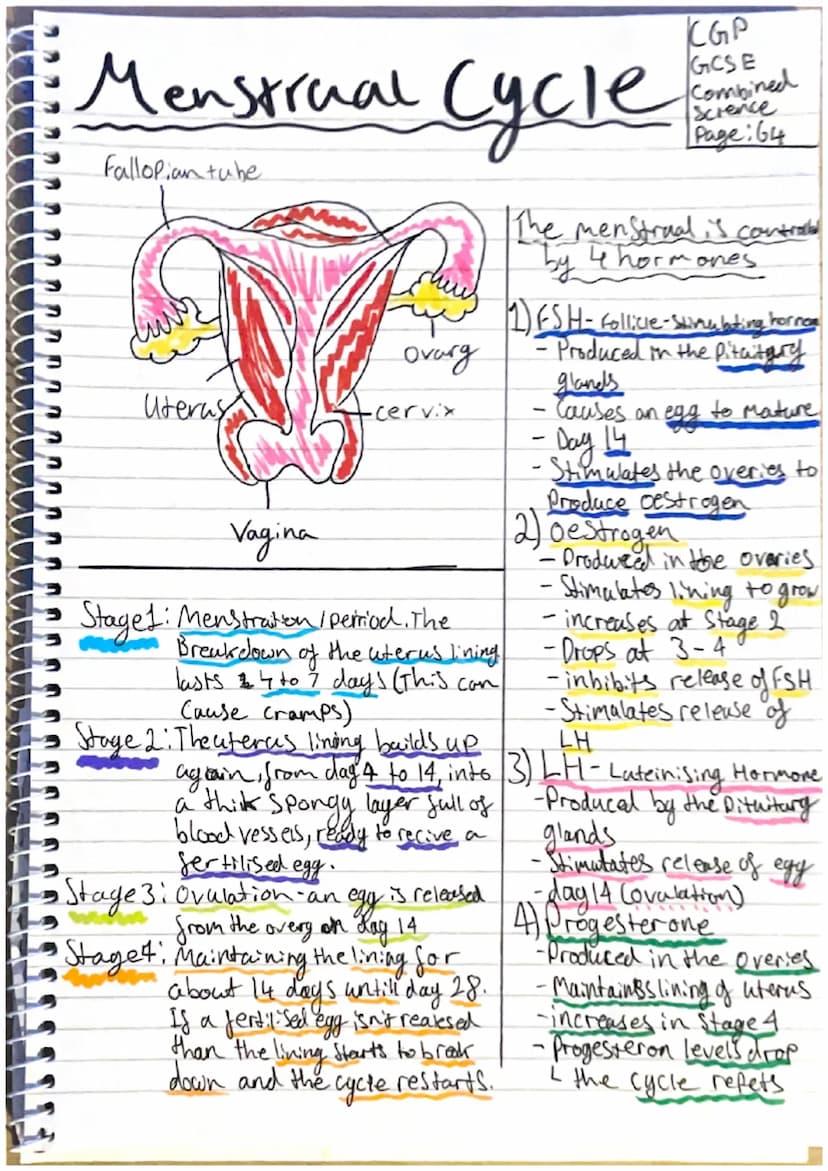 Menstrual Cycle
CGP
GCSE
Combined
Science
Page: 64
Fallopian tube
Ovary
Uterus
cervix
Vagina
Stage1: Menstration / period. The
Breakdown of the uterus lining
lasts 4 to 7 days (This can
cause cramps)
Stage 2: The uterus lining builds up
again, from day 4 to 14, into
a thik spongy layer full of
blood vessels, ready to recive a
fertilised egg.
Stage3: Ovulation - an egg is released
from the overy on day 14
Stage4: Maintaining the lining for
about 14 days untill day 28.
If a fertilised egg isn't realesed
than the lining starts to break
down and the cycle restarts.
The menstrual is controlled
by 4 hormones
1) FSH - Follicle-Stimulating hormon
- Produced in the Pituitary
glands
- Causes an egg to mature
- Day 14
- Stimulates the overies to
Produce oestrogen
2) Oestrogen
- Produced in the ovaries
- Stimulates lining to grow
- increases at Stage 2
- Drops at 3-4
- inbibits release of FSH
- Stimulates release of
LH
3) LH - Luteinising Hormone
- Produced by the Pituitary
glands
- Stimutates release of egg
- day 14 (ovulation)
4) Progesterone
- Produced in the overies
- Maintains lining of uterus
- increases in Stage 4
- Progesteron levels drop
↳ the cycle repets